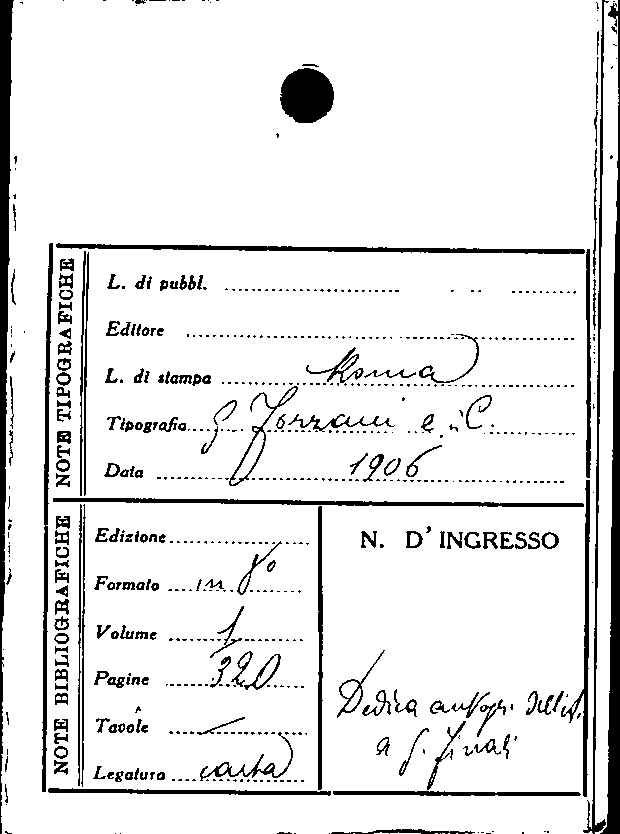 NOTE TIPOGRAFICHE
L. di pubbl.
Editore
L. di stampa Roma
Tipografia G. Forzani e C.
Data 1906
NOTE BIBLIOGRAFICHE
Edizione
Formato in 8º
Volume 1
Pagine 320
Tavole —
Legatura carta
N. D'INGRESSO
Dedica autogr. dell'A.
a G. Finali